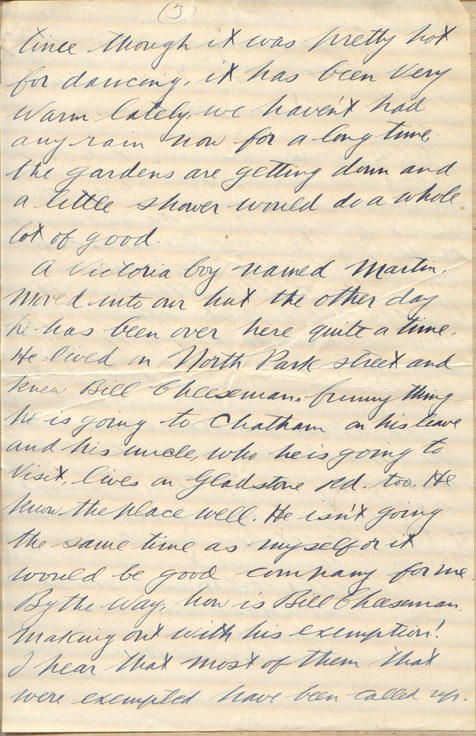 (3)
time though it was pretty hot
for dancing, it has been very
warm lately, we haven't had
any rain now for a long time,
the gardens are getting down and
a little shower would do a whole
lot of good.
A Victoria boy named Martin,
moved into our hut the other day
he has been over here quite a time.
He lived on North Park street and
knew Bill Cheeseman. funny thing
he is going to Chatham on his leave
and his uncle, who he is going to
visit, lives on Gladstone rd. too. He
knows the place well. He isn't going
the same time as myself or it
would be good company for me
By the way, how is Bill Cheeseman
making out with his exemption!
I hear that most of them that
were exempted have been called up.